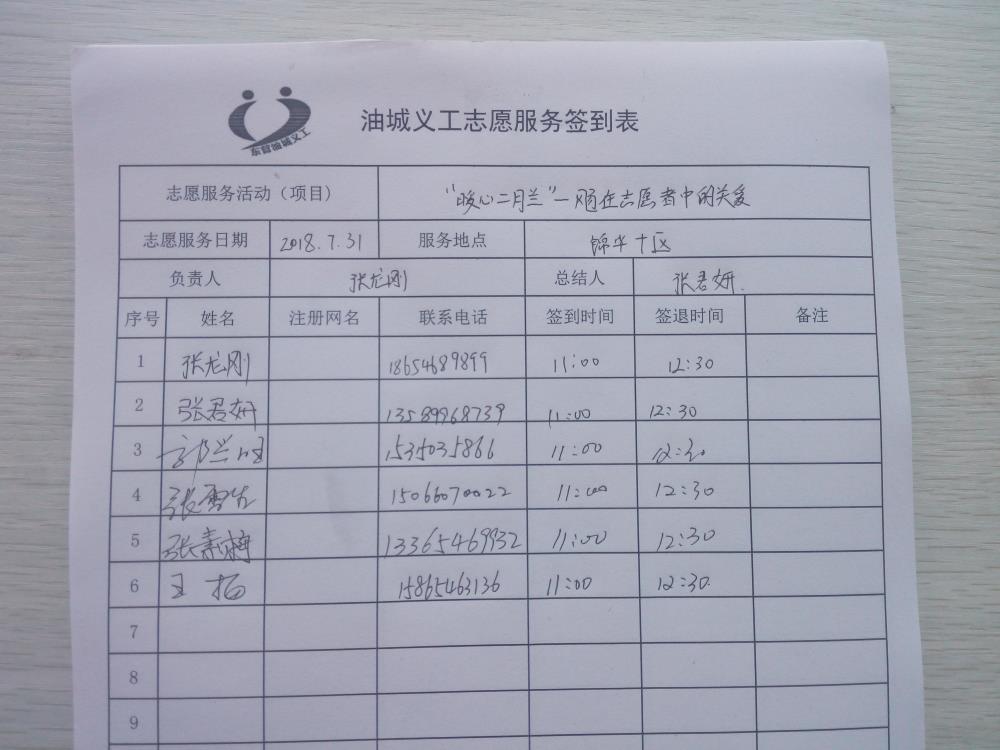 东营油城义工
油城义工志愿服务签到表
志愿服务活动（项目） “暖心二月兰”一 在志愿者中的关爱
志愿服务日期 2018.7.31 服务地点 锦华十区
负责人 张龙刚 总结人 张君妍.
序号 姓名 注册网名 联系电话 签到时间 签退时间 备注
1 张龙刚 18654689899 11:00 12:30
2 张君妍 13589968739 11:00 12:30
3 11:00 12:30
4 张雪 15066070022 11:00 12:30
5 张素梅 13365469932 11:00 12:30
6 王 15865463136 11:00 12:30
7
8
9